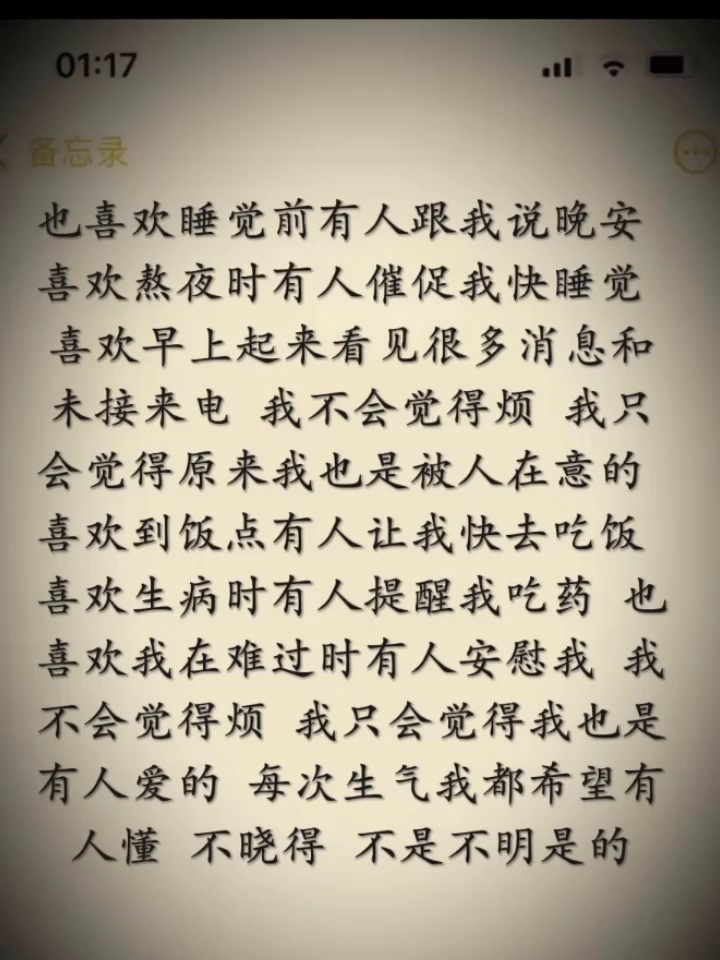 01:17
备忘录
也喜欢睡觉前有人跟我说晚安
喜欢熬夜时有人催促我快睡觉
喜欢早上起来看见很多消息和
未接来电 我不会觉得烦 我只
会觉得原来我也是被人在意的
喜欢到饭点有人让我快去吃饭
喜欢生病时有人提醒我吃药 也
喜欢我在难过时有人安慰我 我
不会觉得烦 我只会觉得我也是
有人爱的 每次生气我都希望有
人懂 不晓得 不是不明是的